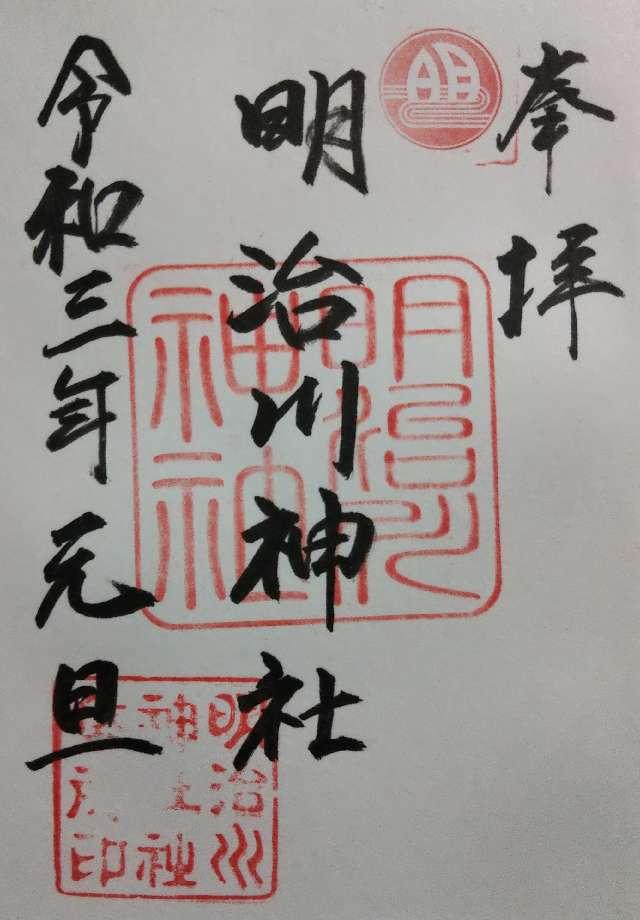 奉拝
明治川神社
令和三年元旦
明治川
神社
明治川
神社